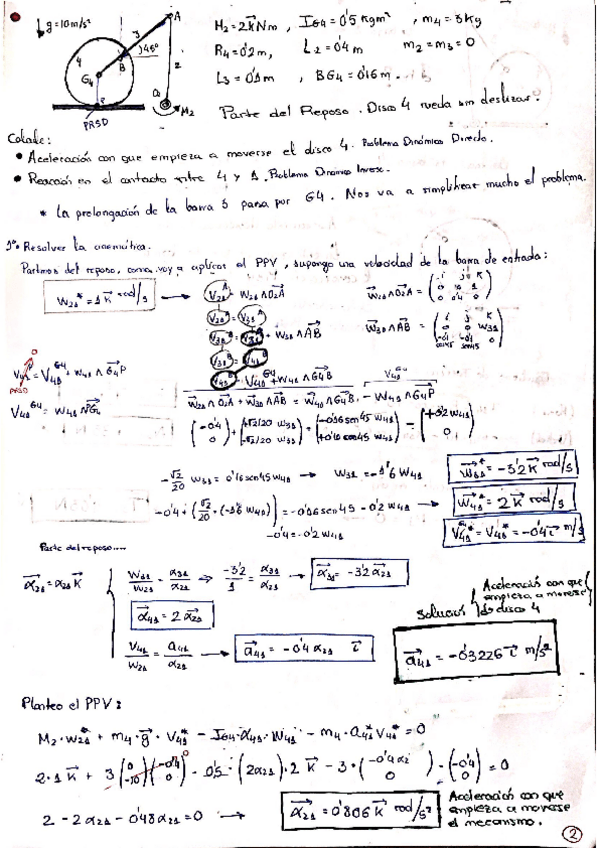 g=10m/s²
A
3
B
45°
4
G4
2
O2
M2
PRSD
M2=2k Nm, IG4=0'5 kgm², m4=3kg
R4=0'2m, L2=0'4m m2=m3=0
L3=0'1m, BG4=0'16m.
Parte del Reposo. Disco 4 rueda sin deslizar.
Calcule:
• Aceleración con que empieza a moverse el disco 4. Problema Dinámico Directo.
• Reacción en el contacto entre 4 y 1. Problema Dinámico Inverso.
* La prolongación de la barra 3 pasa por G4. Nos va a simplificar mucho el problema.
1º. Resolver la cinemática.
Partimos del reposo, como voy a aplicar el PPV, supongo una velocidad de la barra de entrada:
W21* = 1 k rad/s
W21∧O2A
W21∧O2A = ( i j k
0 0 1
0 0'4 0 )
W31∧AB
W31∧AB = ( i j k
0 0 W31
-0'1 cos45 -0'1 sen45 0 )
V41 = V41 G4 + W41∧G4P
PRSD
V41 G4 = W41∧PG4
V41 G4 + W41∧G4B
W21∧O2A + W31∧AB = W41∧G4B - W41∧G4P
-√2/20 W31 = 0'16 sen45 W41 → W31 = -1'6 W41
W31* = -3'2 k rad/s
-0'4 + (√2/20 · (-1'6 W41)) = -0'16 sen45 - 0'2 W41
W41* = 2 k rad/s
-0'4 = -0'2 W41
V41 G4* = V41* = -0'4 i m/s
Parte del reposo....
α21 = α21 k
W31/W21 = α31/α21 ⇒ -3'2/1 = α31/α21 → α31 = -3'2 α21
α41 = 2 α21
V41/W21 = a41/α21 → a41 = -0'4 α21 i
Solución
Aceleración con que empieza a moverse el disco 4
a41 = -0'3226 i m/s²
Planteo el PPV:
M2·W21* + m4·g·V41* - IG4·α41·W41 - m4·a41*V41* = 0
2·1k + 3 (0 -10) (-0'4 0) - 0'5·(2α21)·2k - 3·(-0'4α21 0)·(-0'4 0) = 0
2 - 2α21 - 0'48α21 = 0 → α21 = 0'806 k rad/s²
Aceleración con que empieza a moverse el mecanismo.
2